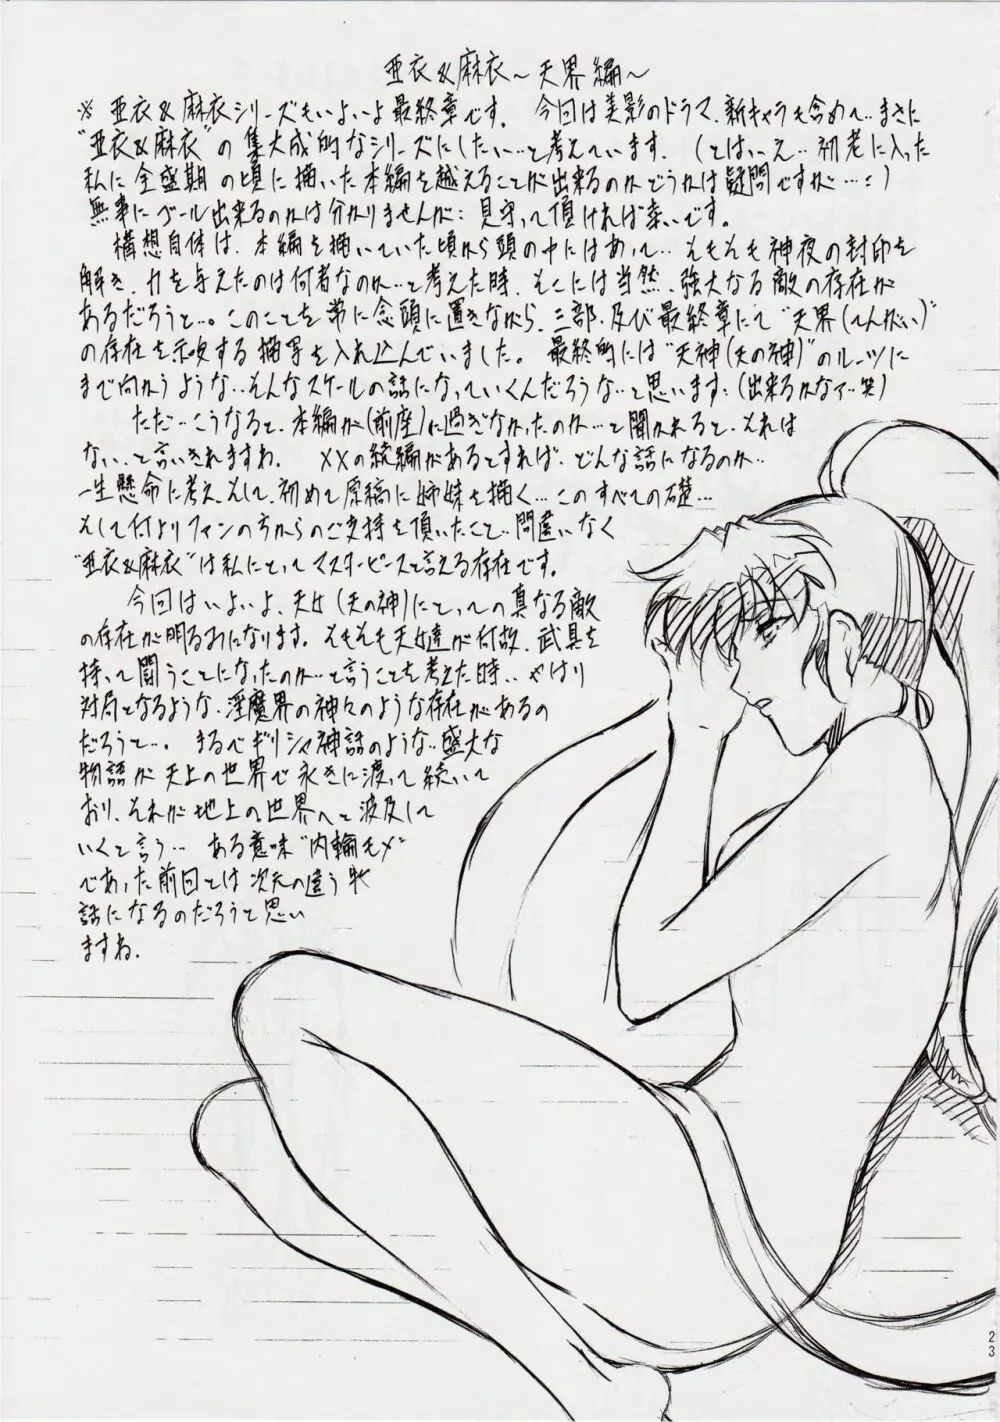 亜衣&麻衣～天界編～
※亜衣&麻衣シリーズもいよいよ最終章です. 今回は美影のドラマ、新キャラも含めて‥まさに
"亜衣&麻衣"の集大成的なシリーズにしたい…と考えています. (とはいえ‥初老に入った
私に全盛期の頃に描いた本編を越えることが出来るのかどうかは疑問ですが…:)
無事にゴール出来るのかは分かりませんが: 見守って頂ければ幸いです。
構想自体は、本編を描いていた頃から頭の中にはあって‥そもそも神夜の封印を
解き、力を与えたのは何者なのか…と考えた時、そこには当然、強大なる敵の存在が
あるだろうと…。このことを常に念頭に置きながら、三部、及び最終章にて"天界(てんがい)"
の存在を示唆する描写を入れ込んでいました。最終的には"天神(天の神)"のルーツに
まで向かうような‥そんなスケールの話になっていくんだろうな‥と思います:(出来るかなァ‥笑)
ただ‥こうなると、本編が(前座)に過ぎなかったのか…と聞かれると、それは
ない‥と言いきれますね. XXの続編があるとすれば、どんな話になるのか‥
一生懸命に考え、そして、初めて原稿に姉妹を描く…このすべての礎…
そして何よりファンの方からのご支持を頂いたこと‥間違いなく
"亜衣&麻衣"は私にとってマスターピースと言える存在です。
今回はいよいよ、天女(天の神)にとっての真なる敵
の存在が明るみになります。そもそも天女達が何故、武具を
持って闘うことになったのか…と言うことを考えた時‥やはり
対局となるような、淫魔界の神々のような存在があるの
だろうと…。まるでギリシャ神話のような‥盛大な
物語が天上の世界で永きに渡って続いて
おり、それが地上の世界へと波及して
いくと言う… ある意味"内輪モメ"
であった前回とは次元の違う
話になるのだろうと思い
ますね.
23